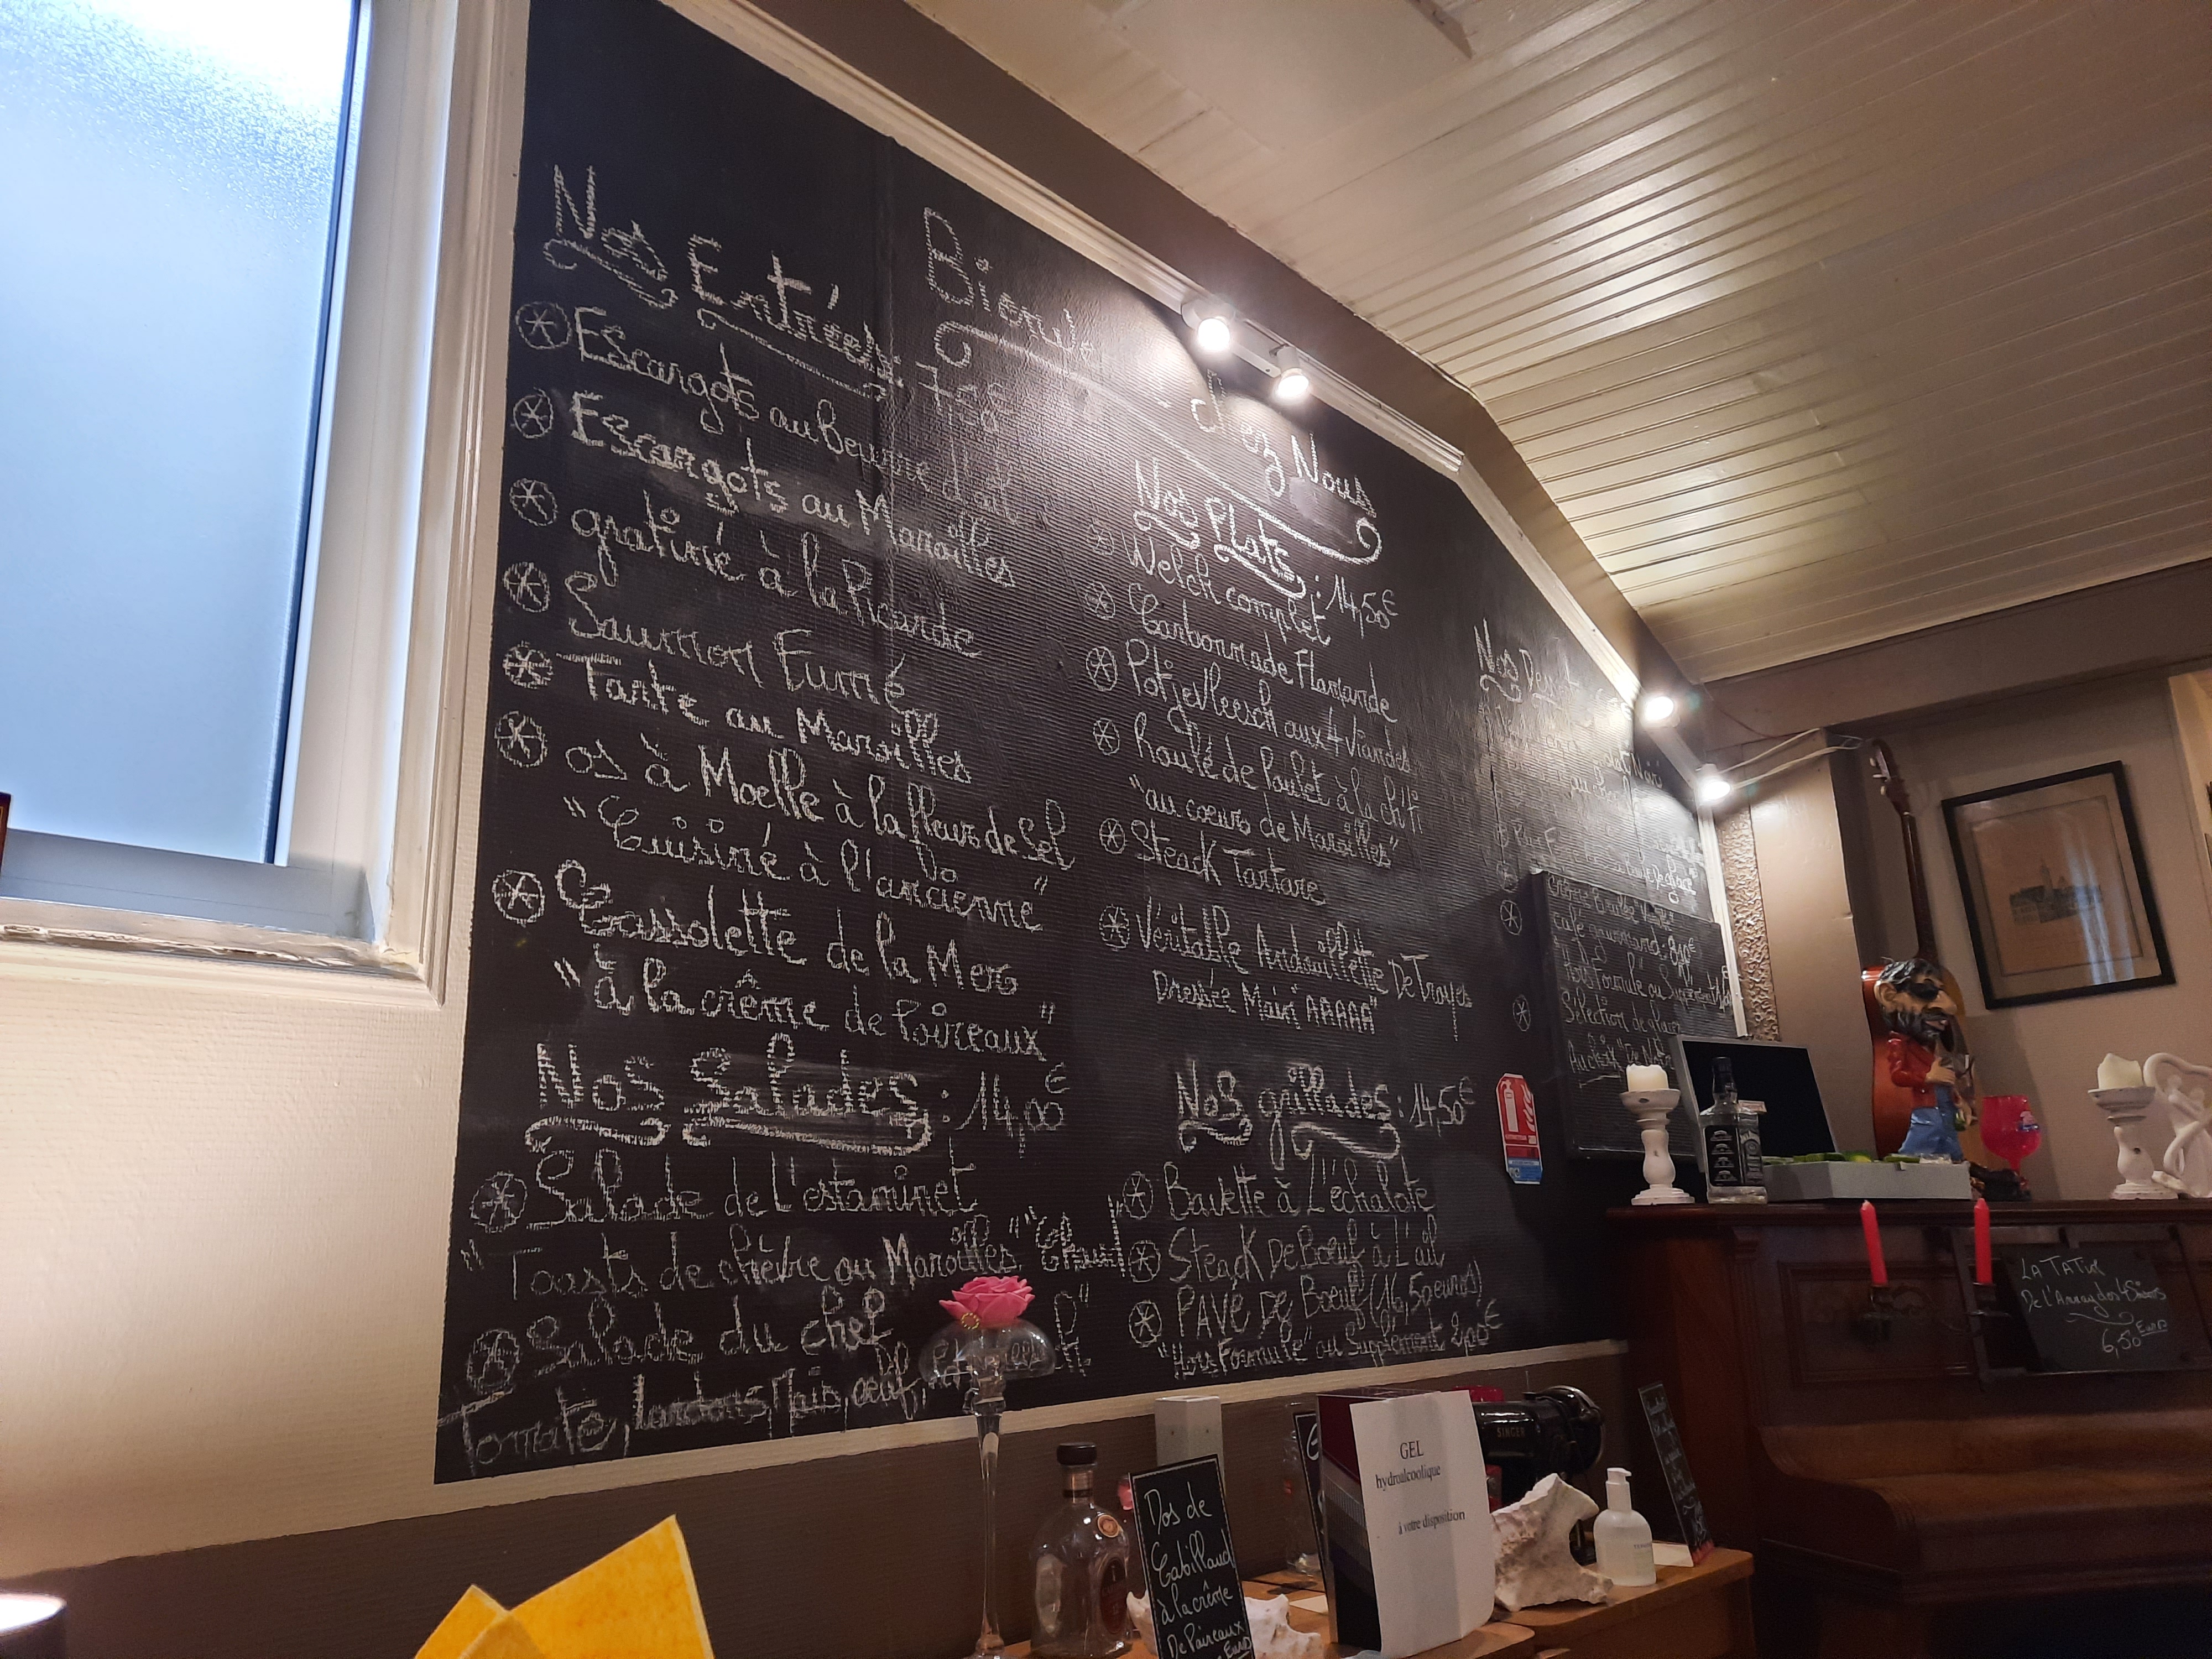 Nos Entrées
Escargots au Beurre d'ail
Escargots au Maroilles
gratiné à la Picarde
Saumon Fumé
Tarte au Maroilles
os à Moelle à la fleur de Sel
"Cuisiné à l'ancienne"
Cassolette de la Mer
"à la crème de Poireaux"
Nos Salades : 14,00€
Salade de L'estaminet
"Toasts de chèvre ou Maroilles" "Chaud"
Salade du chef
Tomate, lardons, Maïs, œuf,
chez Nous
Nos Plats : 14,50€
Welch complet
Carbonnade Flamande
Potjevleesch aux 4 Viandes
Roulé de Poulet à la ch'ti
"au coeur de Maroilles"
Steack Tartare
Véritable Andouillette De Troyes
Dressée Main "AAAAA"
Nos grillades : 14,50€
Bavette à L'échalote
Steack De Bœuf à L'ail
PAVE De Bœuf (16,50 euros)
"Hors Formule" ou Supplément 2,00€
Nos
café gourmand : 8,10€
Hors Formule ou Supplément
Sélection de
GEL
hydroalcoolique
à votre disposition
SINGER
Dos de
Cabillaud
à la crème
De Poireaux
Euros
LA TATIN
6,50 Euros